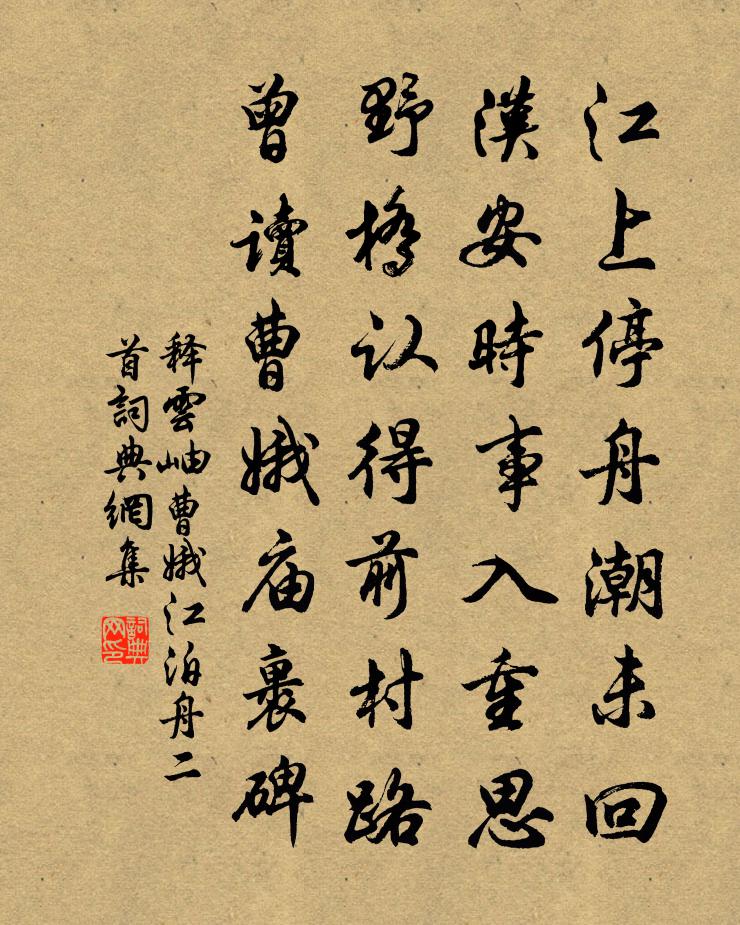 江上停舟潮未回
漢安時事入重思
野橋认得前村路
曾讀曹娥庙裏碑
释雲岫曹娥江泊舟二
首詞典網集
詞典网印